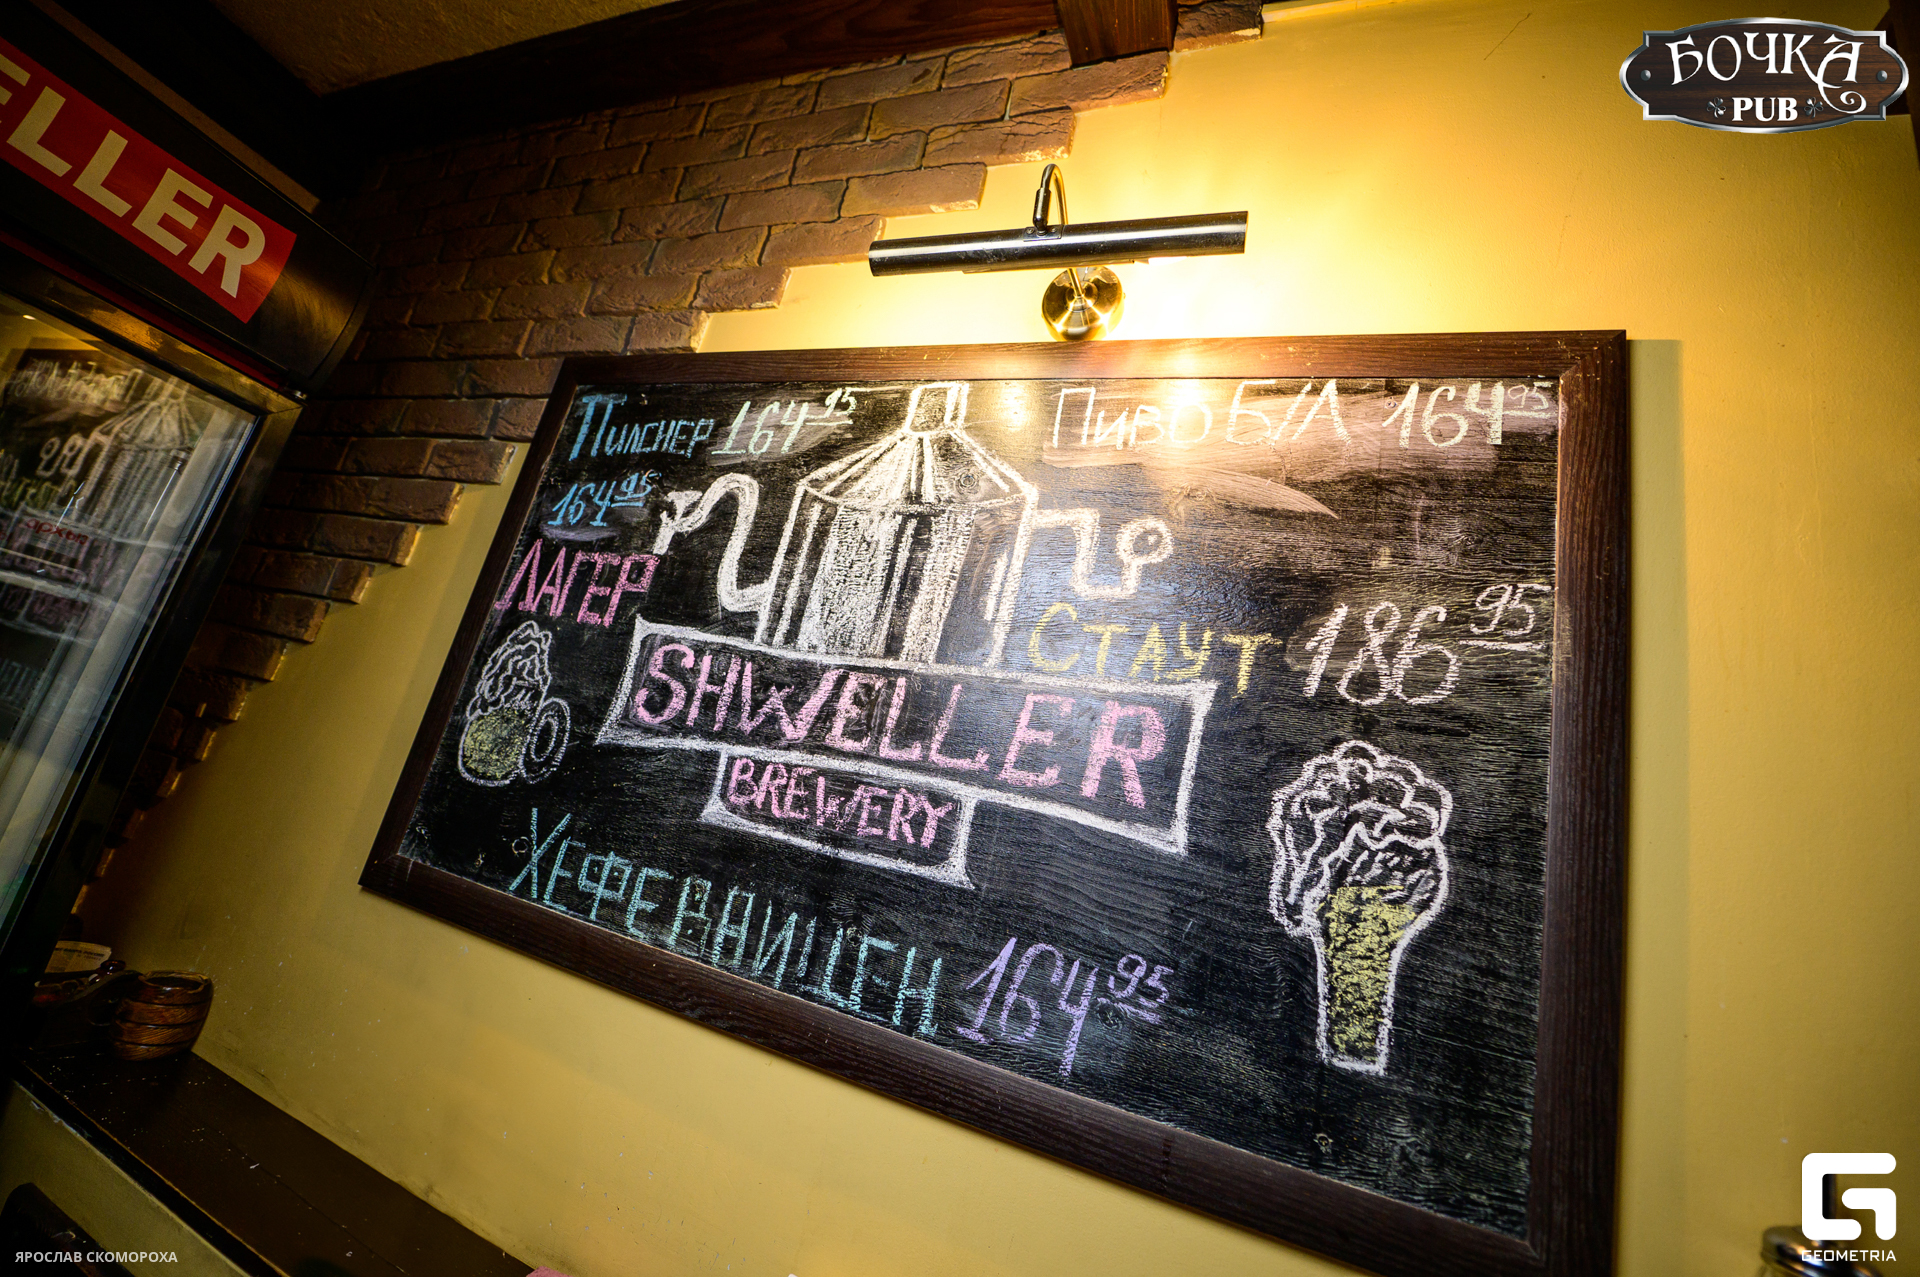 БОЧКА
PUB
ELLER
Пилснер 164 95
Пиво Б/Л 164 95
164 95
ЛАГЕР
Стаут 186 95
SHWELLER
BREWERY
ХЕФЕВАЙЦЕН 164 95
ЯРОСЛАВ СКОМОРОХА
GEOMETRIA